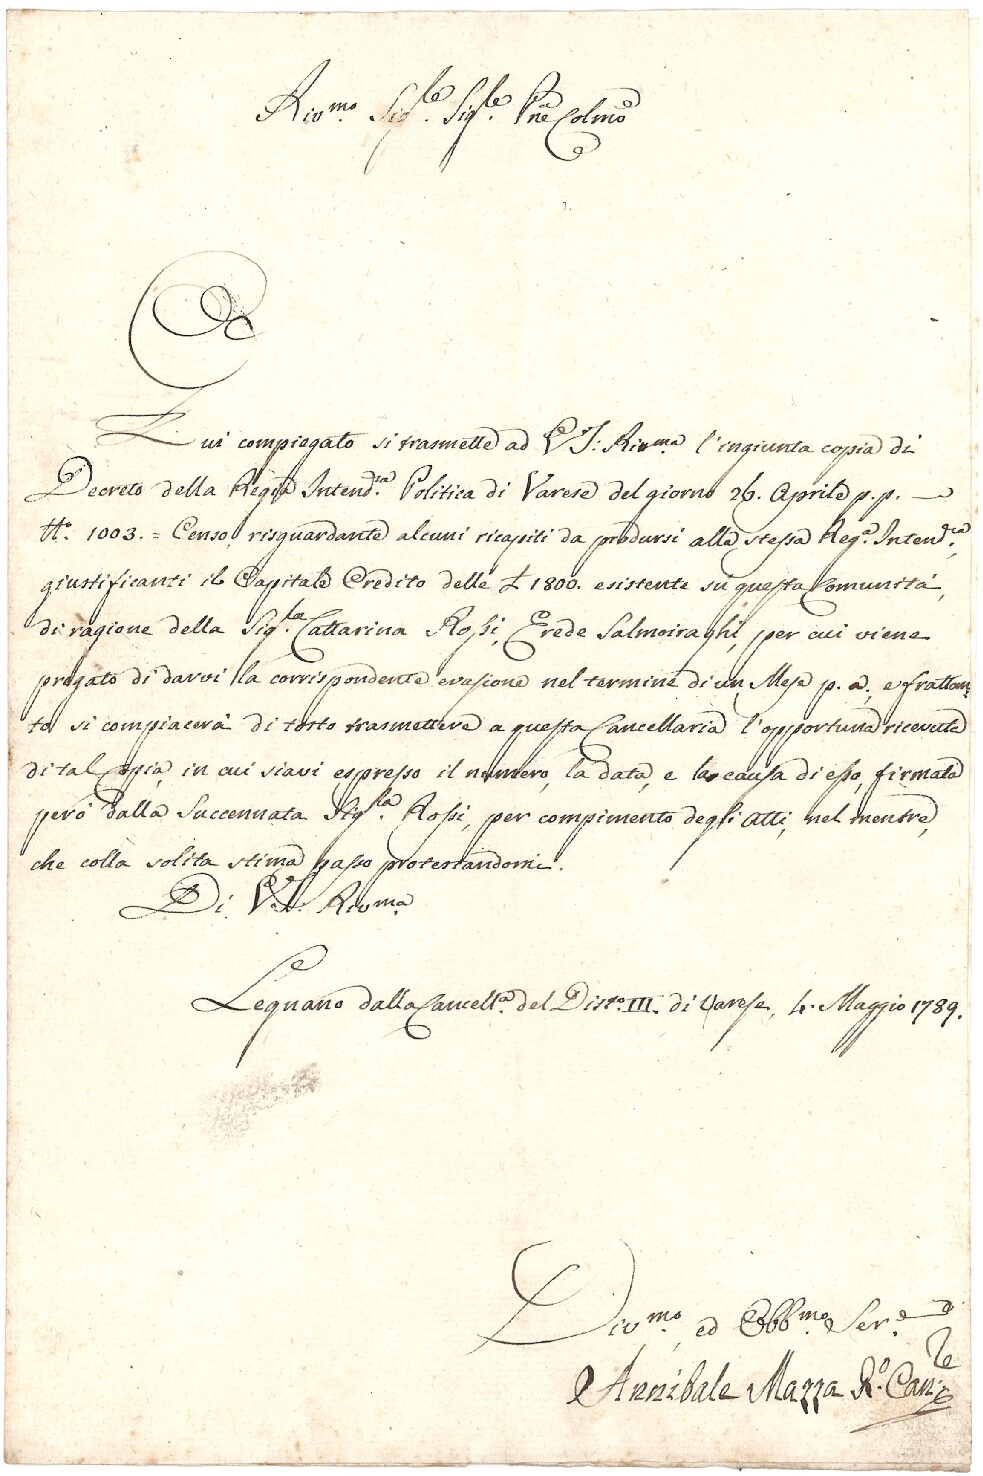 Riv.mo Sig.le Sig.le Pne Colmo
Qui compiegato si trasmette ad V. S. Riv.ma l'ingiunta copia di
Decreto della Regia Intend.za Politica di Varese del giorno 26. Aprile p.p. —
N.o 1003. = Censo, risguardante alcuni ricapiti da prodursi alla stessa Reg.a Intend.za,
giustificanti il Capitale Credito delle £ 1800. esistente su questa Comunità,
di ragione della Sig.ra Cattarina Rossi, Erede Salmoiraghi, per cui viene
pregato di darvi la corrispondente evasione nel termine di un Mese p. a., e frattan-
to si compiacerà di tosto trasmettere a questa Cancellaria l'opportuna ricevuta
di tal Copia, in cui siavi espresso il numero, la data, e la causa di esso, firmata
però dalla Succennata Sig.ra Rossi, per compimento degli atti, nel mentre,
che colla solita stima passo protestandomi.
Di V. S. Riv.ma
Legnano dalla Cancell.a del Dist.o III. di Varese, 4. Maggio 1789.
Div.mo ed Obb.mo Ser.e
Annibale Mazza R.o Can.re